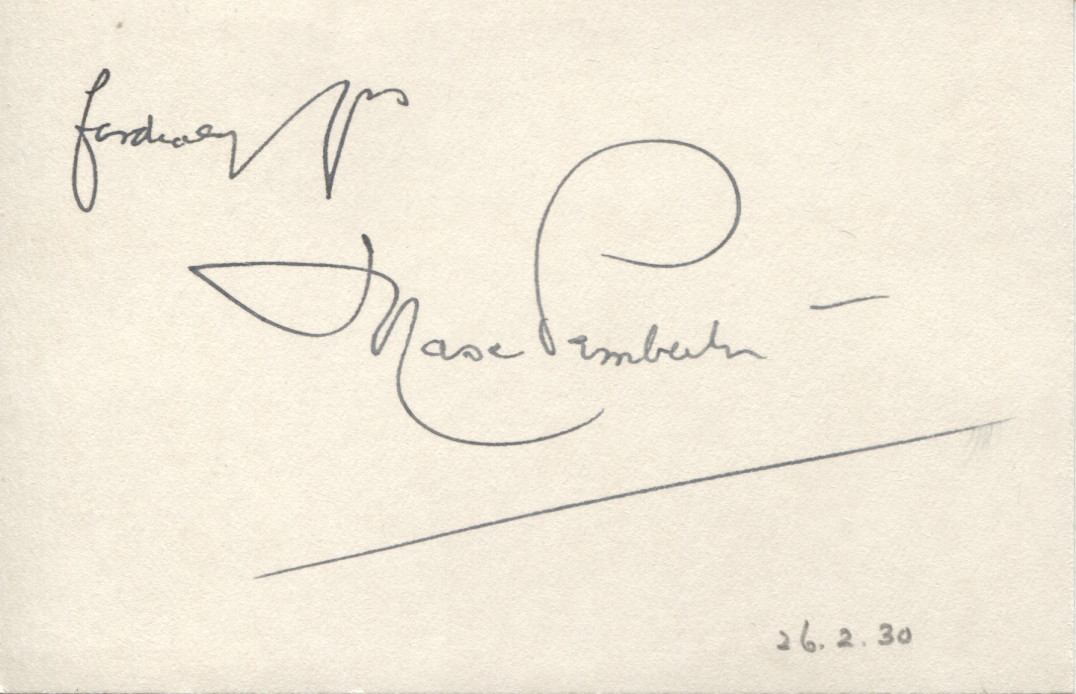 Cordially yrs
Max Pemberton
26.2.30